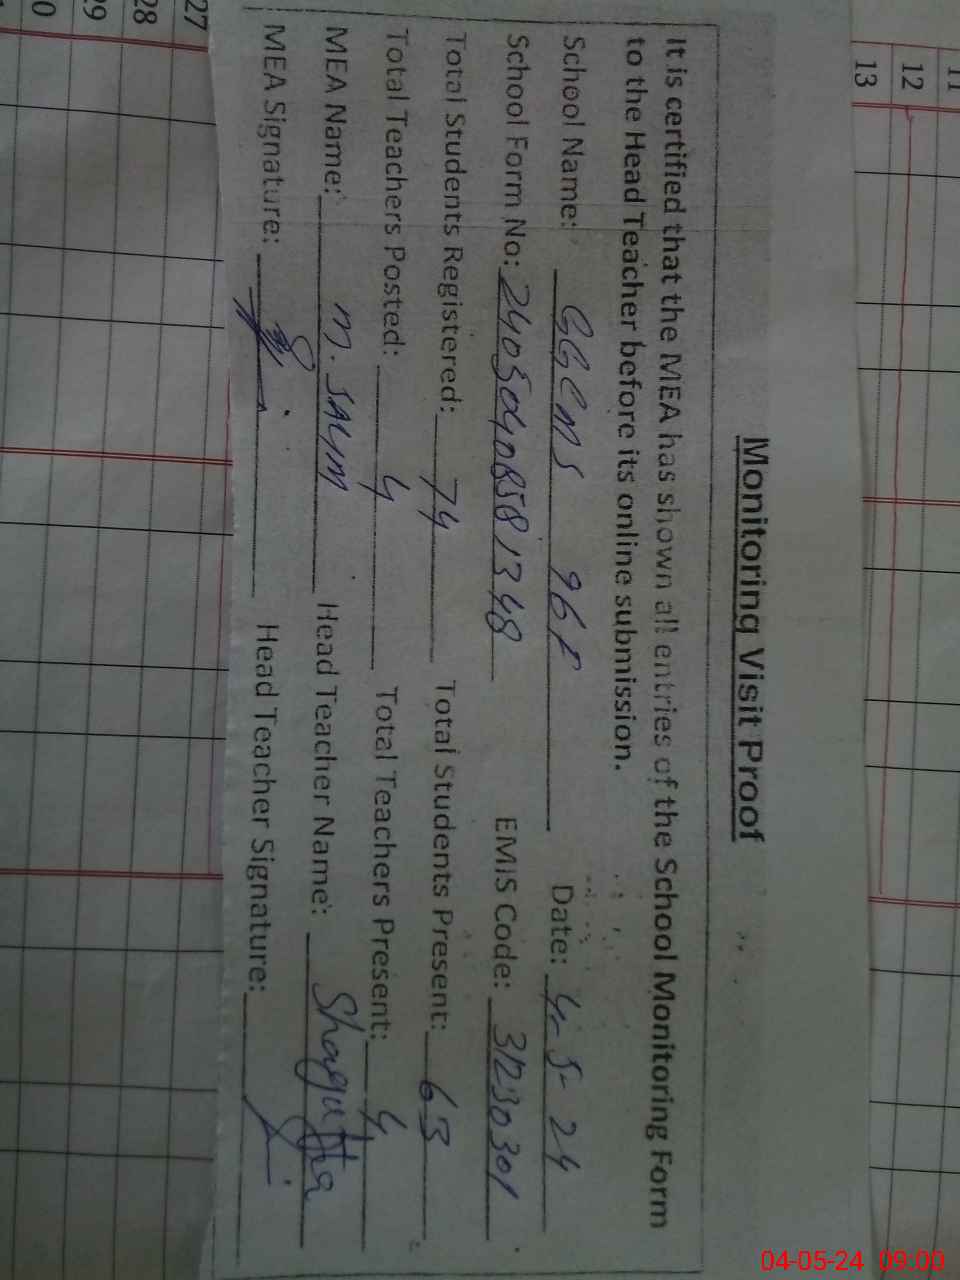 Monitoring Visit Proof
It is certified that the MEA has shown all entries of the School Monitoring Form
to the Head Teacher before its online submission.
School Name: GGCMS 96P Date: 4-5-24
School Form No: EMIS Code: 31230301
Total Students Registered: 74 Total Students Present: 63
Total Teachers Posted: 4 Total Teachers Present: 4
MEA Name: M. SAYM Head Teacher Name: Shagufta
MEA Signature: Head Teacher Signature:
11
12
13
27
28
29
04-05-24 09:00